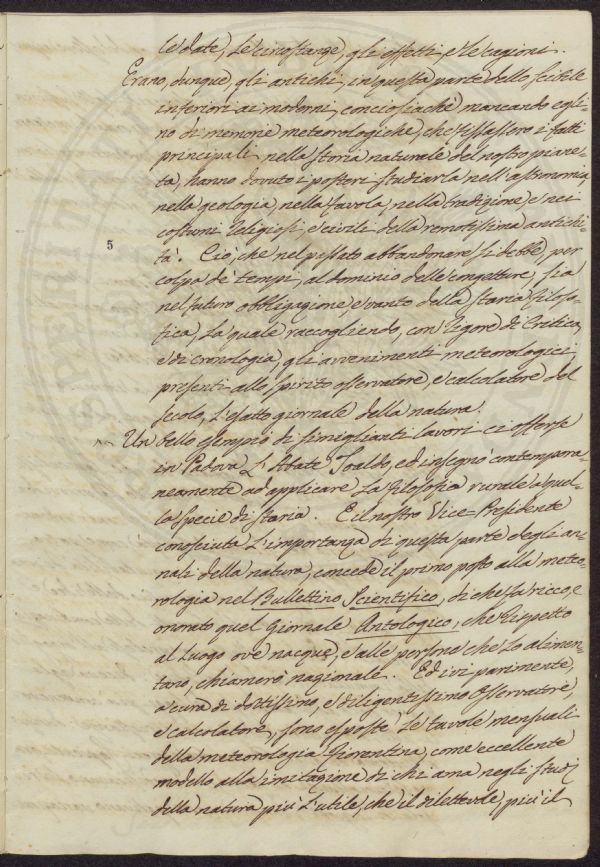 le date, le circostanze, gli effetti, e le cagioni.
Erano, dunque, gli antichi, in questa parte dello scibile
inferiori ai moderni, conciosiachè mancando egli-
no di memorie meteorologiche, che fissassero i fatti
principali nella storia naturale del nostro piane-
ta, hanno dovuto i posteri studiarla nell'astronomia,
nella geologia, nella favola, nella tradizione, e nei
costumi religiosi, e civili della remotissima antichi-
tà. Ciò, che nel passato abbandonare si debbe, per
5
colpa de' tempi, al dominio delle congetture, sia
nel futuro obbligazione, e vanto della storia filoso-
fica, la quale raccogliendo, con rigore di Critica,
e di cronologia, gli avvenimenti meteorologici,
presenti allo spirito osservatore, e calcolatore del
secolo, l'esatto giornale della natura.
Un bello esempio di simiglianti lavori ci offerse
in Padova l'Abate Toaldo, ed insegnò contempora-
neamente ad applicare la filosofia rurale a quel-
la specie di storia. E il nostro Vice-Presidente
conosciuta l'importanza di questa parte degli an-
nali della natura, concede il primo posto alla meteo-
rologia nel Bullettino Scientifico, di che fa ricco, e
onorato quel Giornale Antologico, che rispetto
al luogo ove nacque, e alle persone che lo alimen-
tano, chiamerò nazionale. Ed ivi parimente,
a cura di dottissimo, e diligentissimo Osservatore,
e calcolatore, sono esposte le tavole mensuali
della meteorologia fiorentina, come eccellente
modello alla imitazione di chi ama negli studj
della natura più l'utile, che il dilettevole, più il